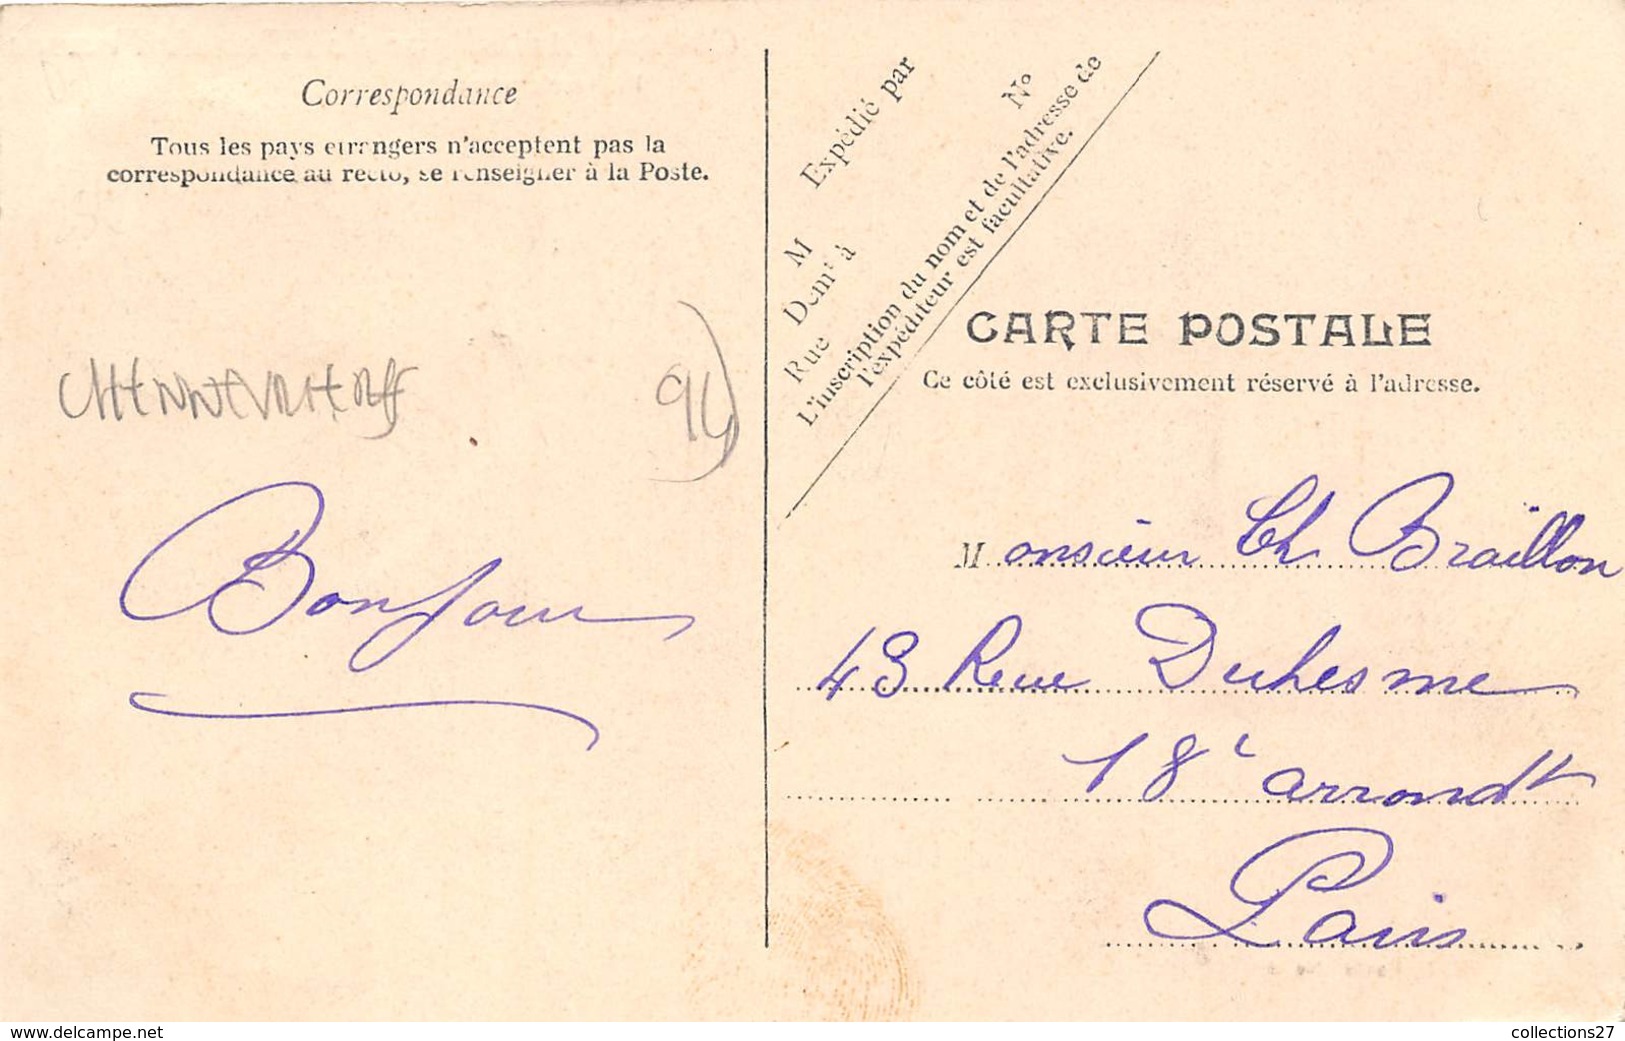 Correspondance
Tous les pays etrangers n'acceptent pas la
correspondance au recto, se renseigner à la Poste.
94)
Bonjour
Expédié par
M
Demt à
Rue
N°
L'inscription du nom et de l'adresse de
l'expéditeur est facultative.
CARTE POSTALE
Ce côté est exclusivement réservé à l'adresse.
Monsieur Ch Braïllon
43 Rue Duhesme
18e arrondt
Paris
www.delcampe.net
collections27